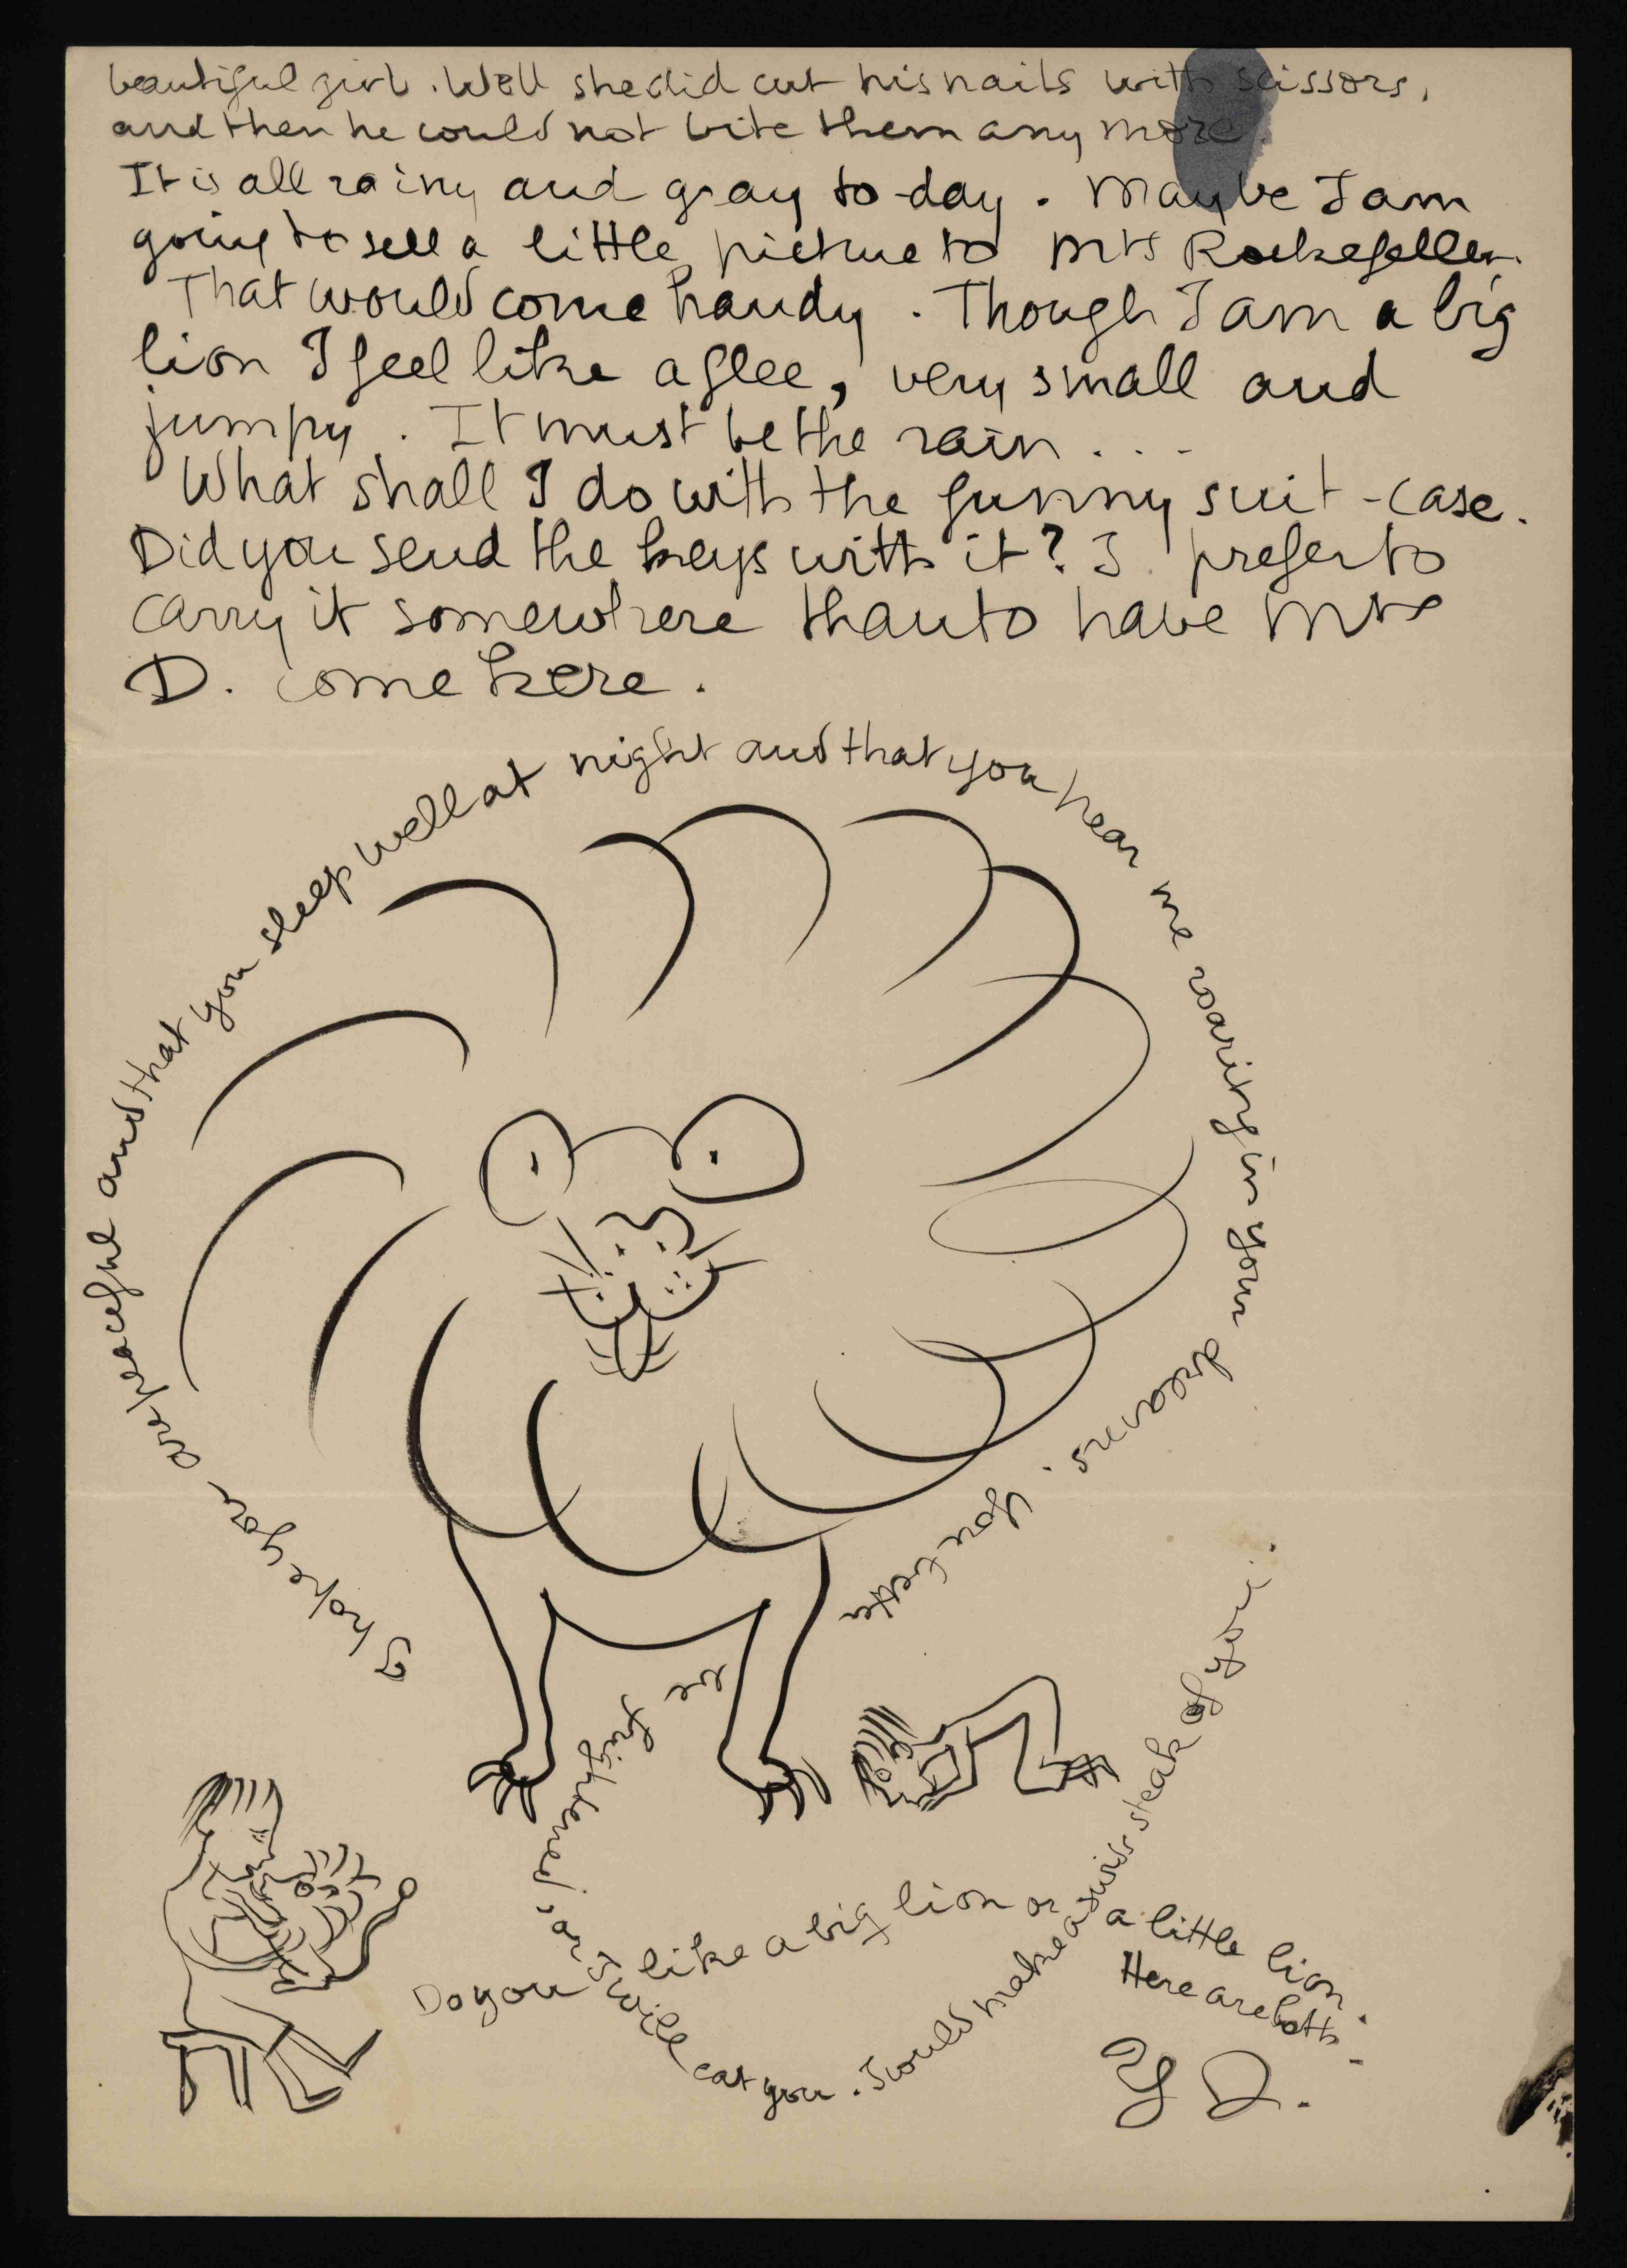 beautiful girl. Well she did cut his nails with scissors,
and then he could not bite them any more
It is all rainy and gray to-day. Maybe I am
going to sell a little picture to Mrs Rockefeller.
That would come handy. Though I am a big
lion I feel like a flee, very small and
jumpy. It must be the rain...
What shall I do with the funny suit-case.
Did you send the keys with it? I prefer to
carry it somewhere than to have Mrs
D. come here.
I hope you are peaceful and that you sleep well at night and that you hear me roaring in your dreams. You better be frightened, or I will eat you. I would make a swiss steak of you..
Do you like a big lion or a little lion.
Here are both.
Y D.